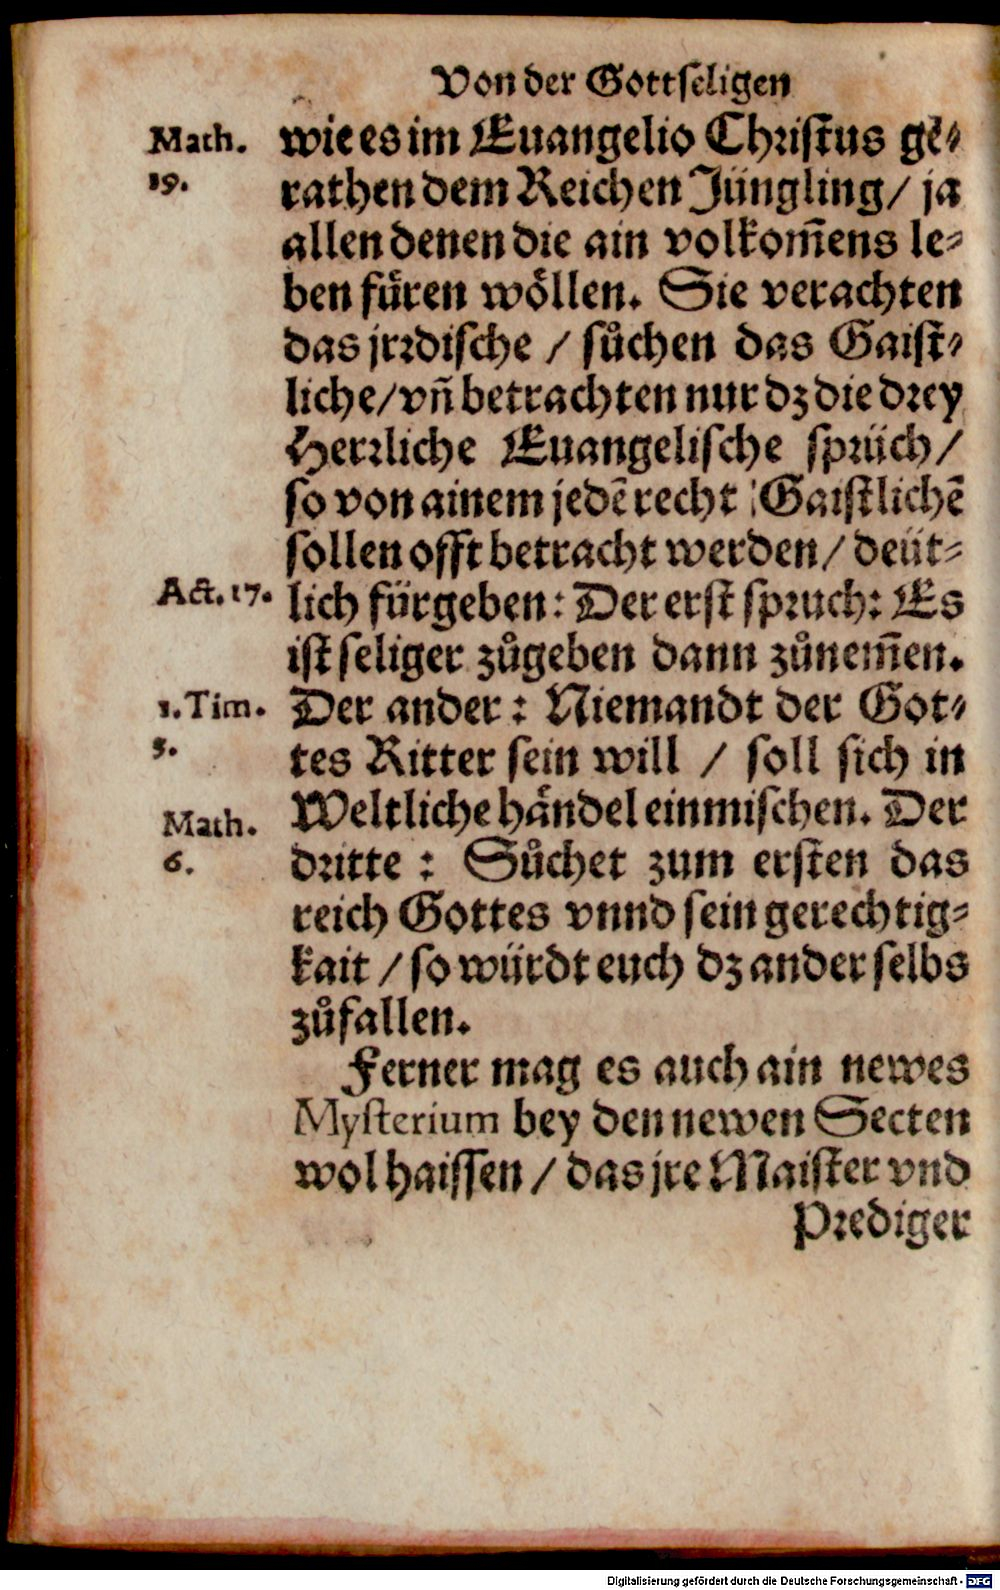 Von der Gottseligen
Math.
19.
wie es im Euangelio Christus ge⸗
rathen dem Reichen Jüngling/ ja
allen denen die ain volkom̃ens le⸗
ben fuͤren woͤllen. Sie verachten
das jrrdische / suͦchen das Gaist⸗
liche/ vñ betrachten nur dz die drey
Herrliche Euangelische sprüch/
so von ainem jedẽ recht Gaistlichẽ
sollen offt betracht werden/ deüt⸗
Act. 17.
lich fürgeben: Der erst spruch: Es
ist seliger zuͦgeben dann zuͦnem̃en.
1. Tim.
5.
Der ander: Niemandt der Got⸗
tes Ritter sein will / soll sich in
Weltliche haͤndel einmischen. Der
Math.
6.
dritte: Suͦchet zum ersten das
reich Gottes vnnd sein gerechtig⸗
kait / so würdt euch dz ander selbs
zuͦfallen.
Ferner mag es auch ain newes
Mysterium bey den newen Secten
wol haissen / das jre Maister vnd
Prediger
Digitalisierung gefördert durch die Deutsche Forschungsgemeinschaft - DFG